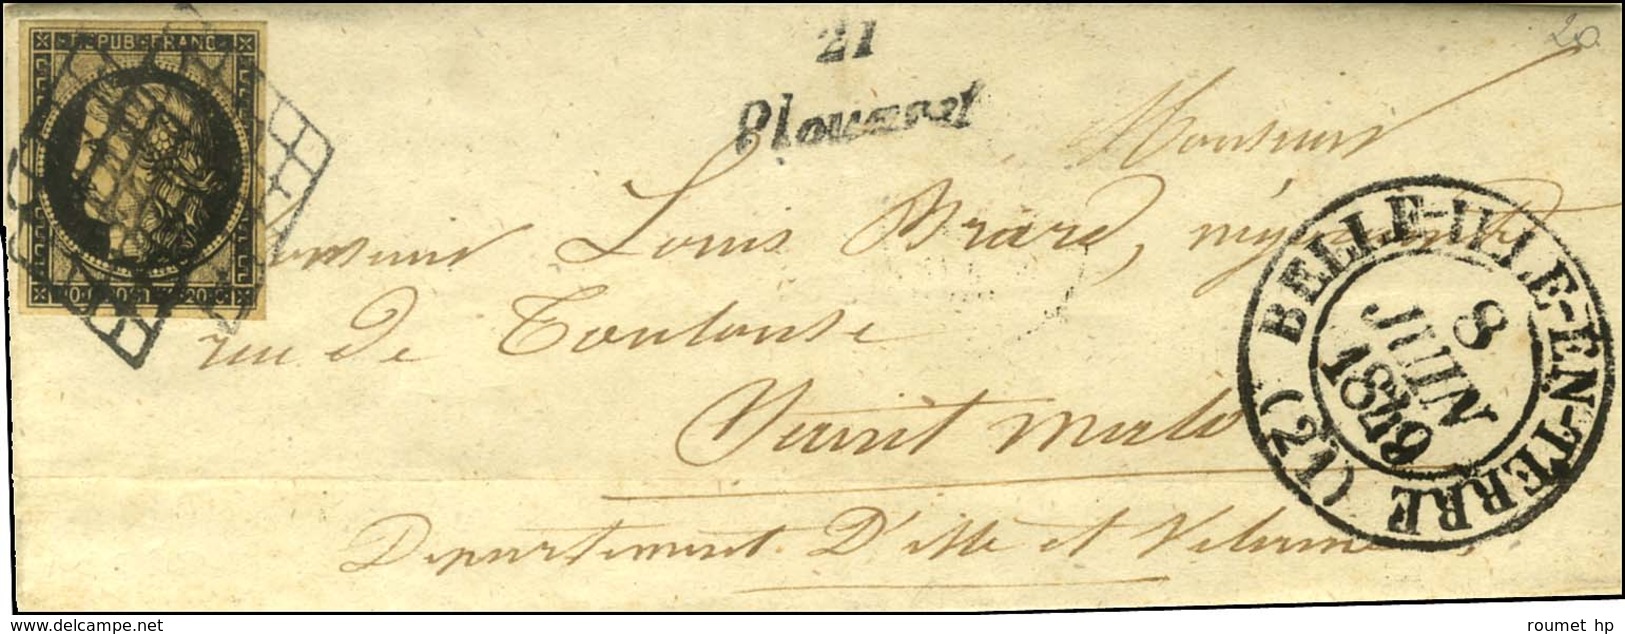 REPUB·FRANC·
20·C·
21
Plouaret
20
Monsieur
Monsieur Louis Brard, négociant
rue de Toulouse
Saint Malo
Département D'ille et Vilaine
BELLE-ILLE-EN-TERRE (21)
8
JUIN
1849
delcampe.net
roumet hp